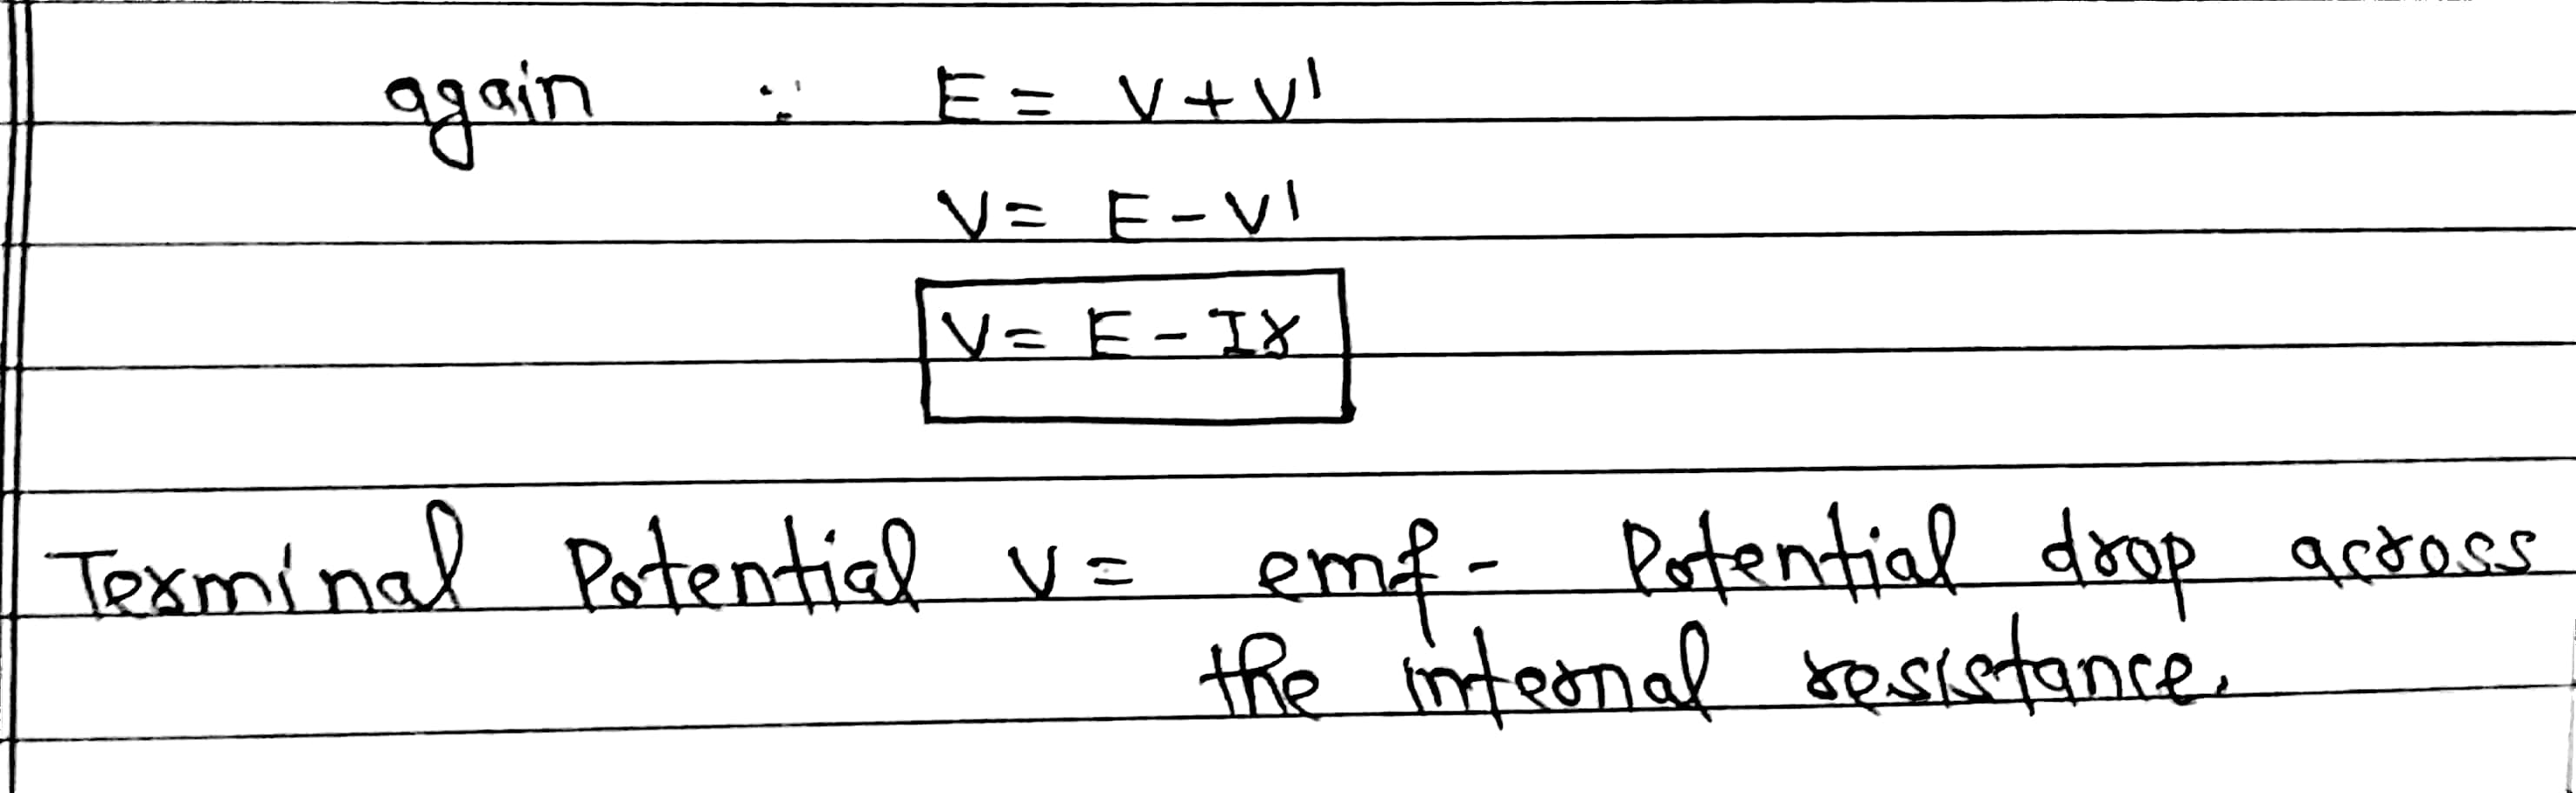 again ∵ E = V + V'
V = E - V'
V = E - Ir
Terminal Potential V = emf - Potential drop across
the internal resistance.